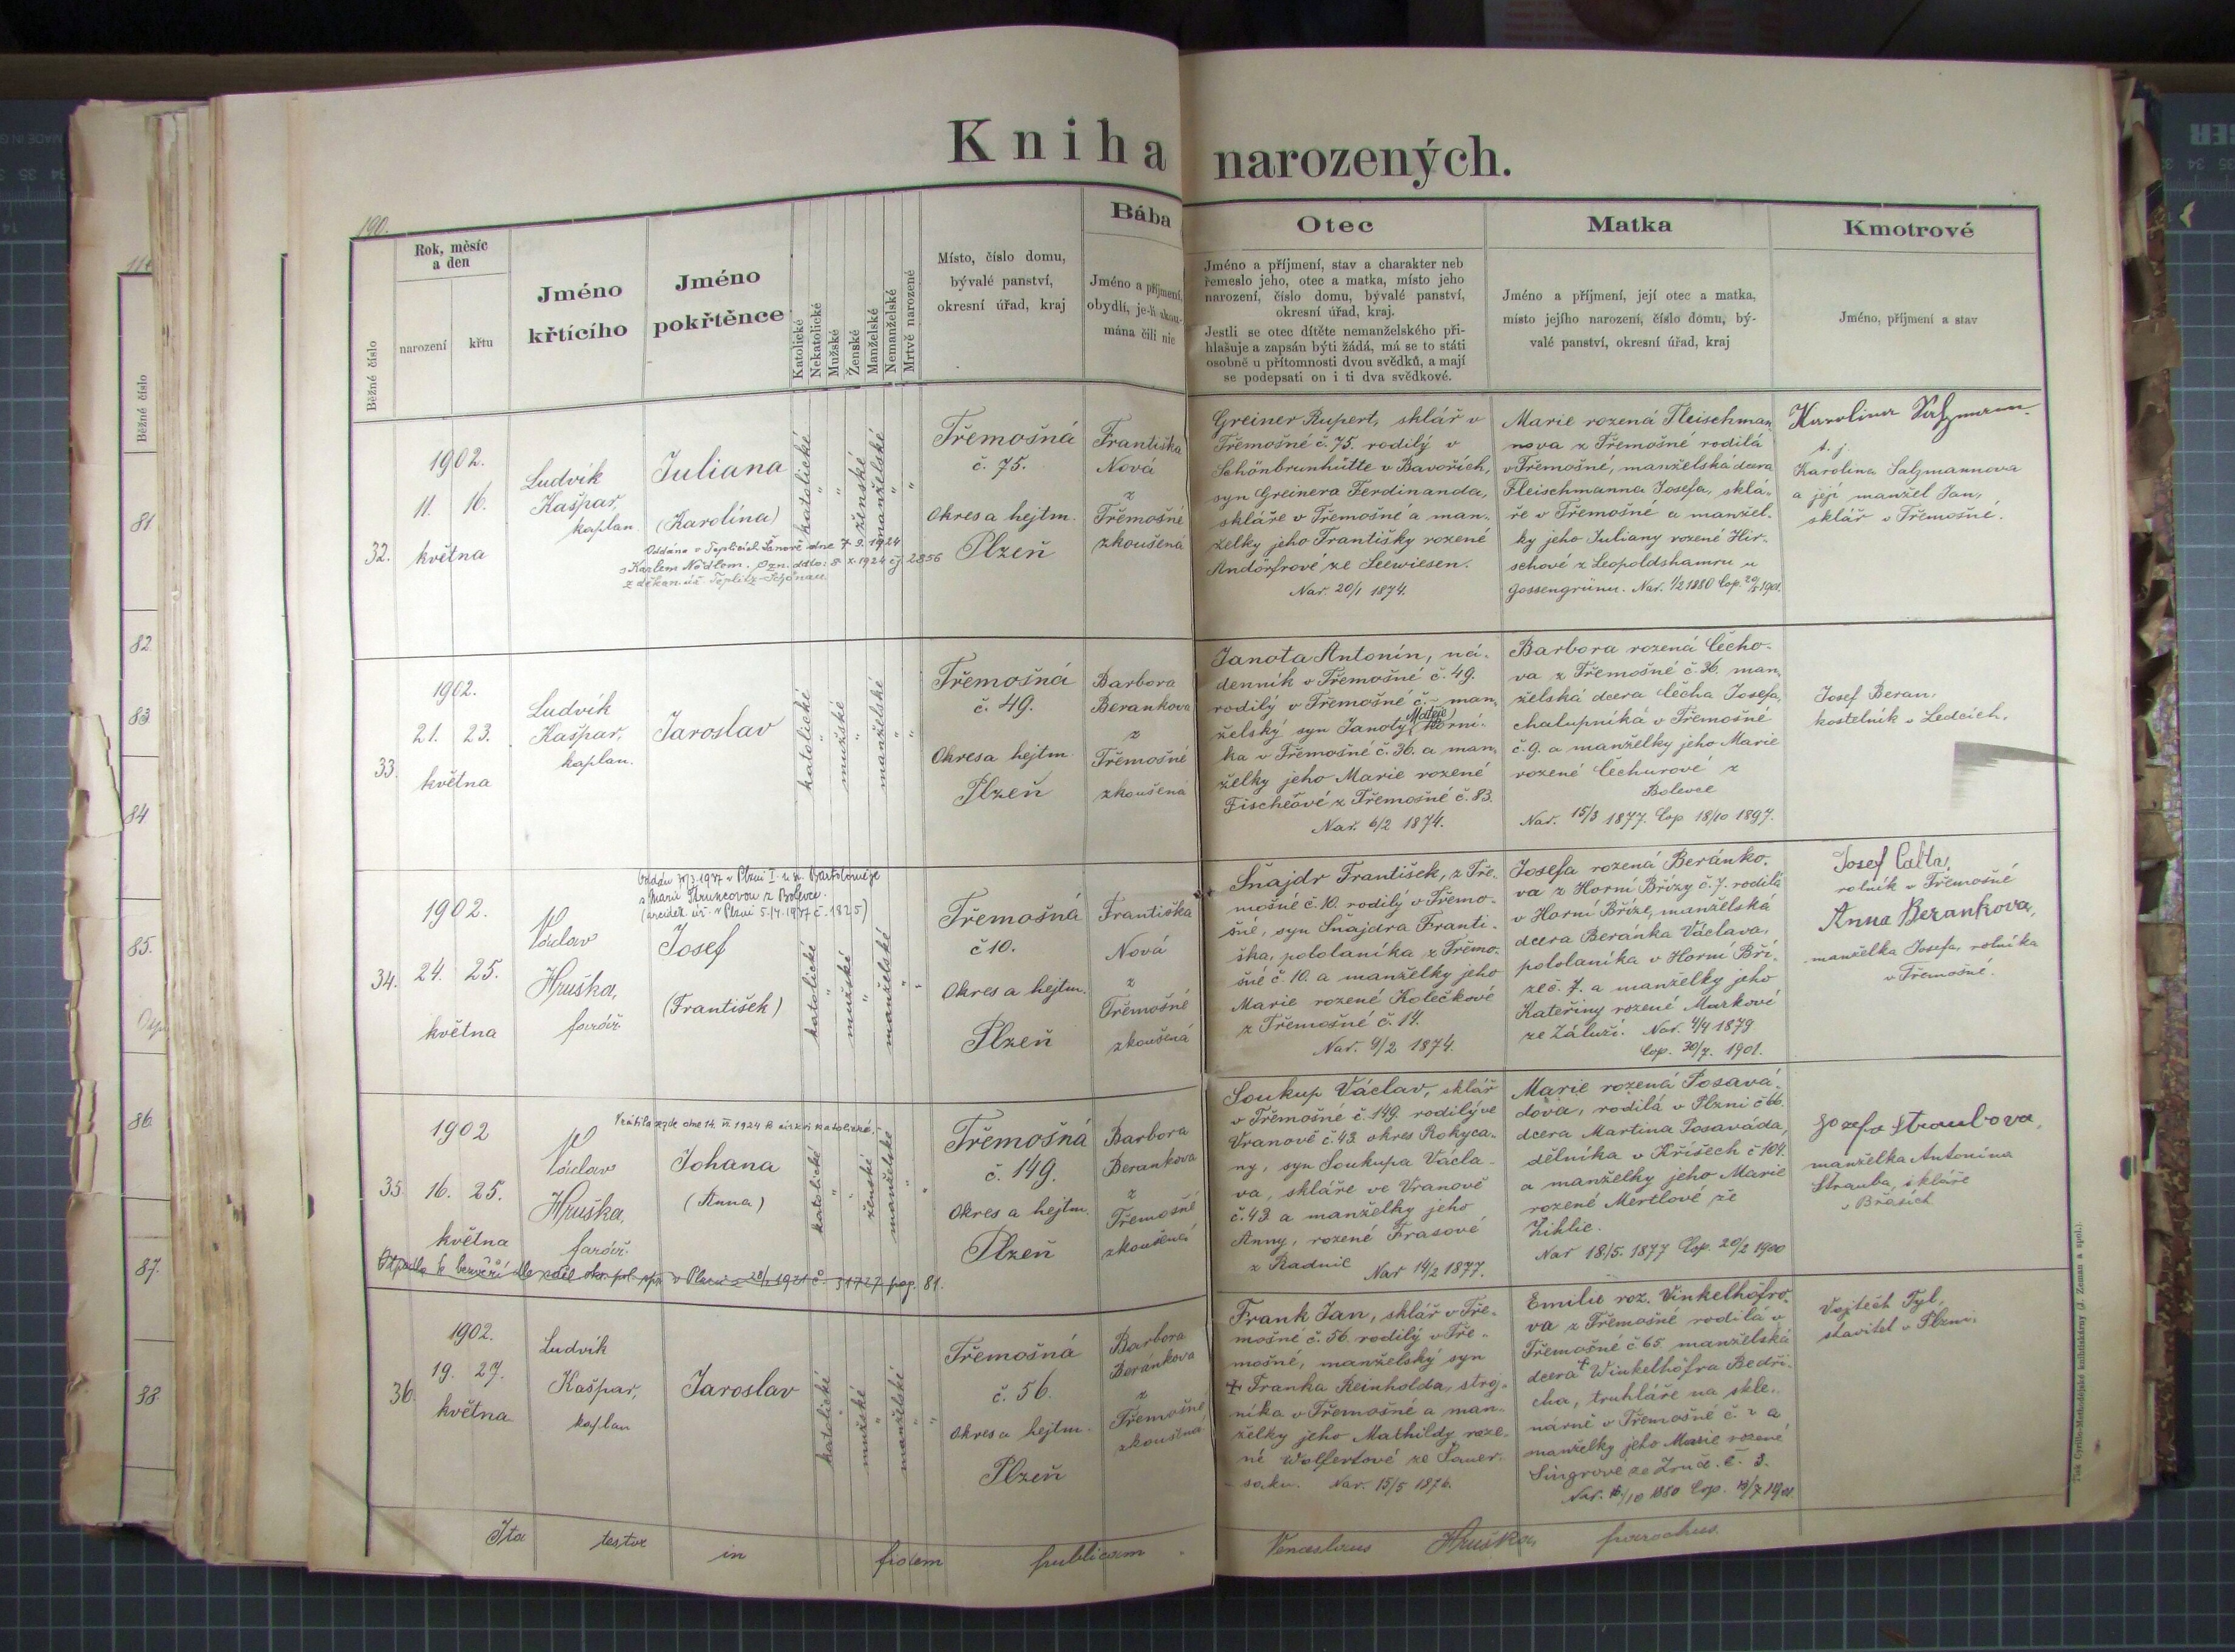 Kniha narozených.
190.
Běžné číslo
Rok, měsíc
a den
narození
křtu
Jméno
křtícího
Jméno
pokřtěnce
Katolické
Nekatolické
Mužské
Ženské
Manželské
Nemanželské
Mrtvě narozené
Místo, číslo domu,
bývalé panství,
okresní úřad, kraj
Bába
Jméno a příjmení,
obydlí, je-li zkou-
mána čili nic
Otec
Jméno a příjmení, stav a charakter neb
řemeslo jeho, otec a matka, místo jeho
narození, číslo domu, bývalé panství,
okresní úřad, kraj.
Jestli se otec dítěte nemanželského při-
hlašuje a zapsán býti žádá, má se to státi
osobně u přítomnosti dvou svědků, a mají
se podepsati on i ti dva svědkové.
Matka
Jméno a příjmení, její otec a matka,
místo jejího narození, číslo domu, bý-
valé panství, okresní úřad, kraj
Kmotrové
Jméno, příjmení a stav
32.
1902.
11. 16.
května
Ludvík
Kašpar,
kaplan
Juliana
(Karolina)
Oddána v Teplicích Šanově dne 7.9.1924
s Karlem Nödlem. Ozn. ddto: 5. X. 1924 čj 2856
z děkan. úř. Teplitz-Schönau.
katolické
"
"
ženské
manželské
"
"
Třemošná
č. 75.
Okres a hejtm.
Plzeň
Františka
Nová
z
Třemošné
zkoušená
Greiner Rupert, sklář v
Třemošné č. 75. rodilý v
Schönbrunhütte v Bavořích,
syn Greinera Ferdinanda,
skláře v Třemošné a man-
želky jeho Františky rozené
Andörfrové ze Seewiesen.
Nar. 20/1 1874.
Marie rozená Fleischman
nova z Třemošné rodilá
v Třemošné, manželská dcera
Fleischmanna Josefa, sklá-
ře v Třemošné a manžel-
ky jeho Juliany rozené Hir-
schové z Leopoldshamru u
Gossengrünu. Nar. 1/2 1880 Cop. 1901.
Karolina Salzmann.
t. j.
Karolina Salzmannova
a její manžel Jan,
sklář v Třemošné.
33.
1902.
21. 23.
května
Ludvík
Kašpar,
kaplan.
Jaroslav
katolické
"
mužské
"
manželské
"
"
Třemošná
č. 49.
Okres a hejtm.
Plzeň
Barbora
Berankova
z
Třemošné
zkoušená
Janota Antonín, ná-
denník v Třemošné č. 49.
rodilý v Třemošné č. – man-
želský syn Janoty (Matěje) horní-
ka v Třemošné č. 36. a man-
želky jeho Marie rozené
Fischerové z Třemošné č. 83.
Nar. 6/2 1874.
Barbora rozená Čecho-
va z Třemošné č. 36. man-
želská dcera Čecha Josefa,
chalupníka v Třemošné
č. 9. a manželky jeho Marie
rozené Čechurové z
Bolevce
Nar. 15/3 1877. Cop 18/10 1897.
Josef Beran,
kostelník v Ledcích.
34.
1902.
24. 25.
května
Václav
Hruška,
farář.
Oddán 31/3.1937 v Plzni I. u sv. Bartoloměje
s Marií Struncovou z Bolevce.
(arciděk. úř. v Plzni 5./4. 1937 č. 1825)
Josef
(František)
katolické
"
mužské
"
manželské
"
"
Třemošná
č 10.
Okres a hejtm.
Plzeň
Františka
Nová
z
Třemošné
zkoušená
Šnajdr František, z Tře-
mošné č. 10. rodilý v Třemo-
šné, syn Šnajdra Franti-
ška, pololaníka z Třemo-
šné č. 10. a manželky jeho
Marie rozené Kolečkové
z Třemošné č. 14.
Nar. 9/2 1874.
Josefa rozená Beránko-
va z Horní Břízy č. 7. rodilá
v Horní Bříze, manželská
dcera Beránka Václava,
pololaníka v Horní Bří-
ze č. 7. a manželky jeho
Kateřiny rozené Markové
ze Záluží. Nar. 4/4 1879
Cop. 30/7. 1901.
Josef Calta,
rolník v Třemošné
Anna Berankova,
manželka Josefa, rolníka
v Třemošné.
35
1902
16. 25.
května
Václav
Hruška,
farář.
Vrátila se zde dne 14. VI. 1924 k církvi katolické.
Johana
(Anna)
katolické
"
"
ženské
manželské
"
"
Třemošná
č. 149.
Okres a hejtm.
Plzeň
Barbora
Berankova
z
Třemošné
zkoušená
Soukup Václav, sklář
v Třemošné č. 149. rodilý ve
Vranově č. 43. okres Rokyca-
ny, syn Soukupa Václa-
va, skláře ve Vranově
č. 43 a manželky jeho
Anny, rozené Frasové
z Radnic Nar 14/2 1877.
Marie rozená Posavá-
dova, rodilá v Plzni č 66.
dcera Martina Posaváda,
dělníka v Křišech č 104.
a manželky jeho Marie
rozené Mertlové ze
Žihlic.
Nar 18/5. 1877 Cop. 20/2 1900
Jozefa Straubova,
manželka Antonína
Strauba, skláře
v Břasích
Odpadla k bezvěří dle sděl. okr. pol. spr. v Plzni z 28/1 1921 č. 31727 pag. 81.
36.
1902.
19. 27.
května
Ludvík
Kašpar,
kaplan
Jaroslav
katolické
"
mužské
"
manželské
"
"
Třemošná
č. 56.
Okres a hejtm.
Plzeň
Barbora
Beránkova
z
Třemošné
zkoušená
Frank Jan, sklář v Tře-
mošné č. 56. rodilý v Tře-
mošné, manželský syn
+ Franka Reinholda, stroj-
níka v Třemošné a man-
želky jeho Mathildy roze-
né Wolfertové ze Sauer-
saku. Nar. 15/5 1876.
Emilie roz. Vinkelhöfro-
va z Třemošné rodilá v
Třemošné č 65 manželská
dcera + Winkelhöfra Bedři-
cha, truhláře na skle-
nárně v Třemošné č. ? a
manželky jeho Marie rozené
Singrové ze Zruč. č. 3.
Nar. /10 1880 Cop. /7 1901
Vojtěch Tyl,
stavitel v Plzni.
Ita testor in fidem publicam. Venceslaus Hruška, parochus.
Tisk Cyrillo-Methodějské knihtiskárny (J. Zeman a spol.).
Běžné číslo
81
82
83
84
85.
86
87.
88